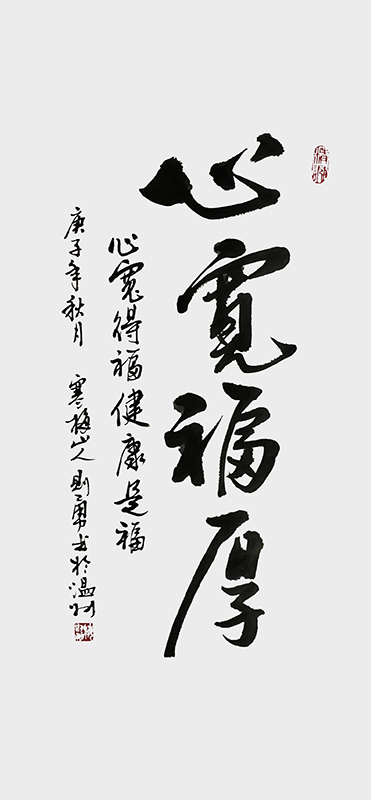 心寬福厚
心寬得福健康是福
庚子年秋月 寒梅山人則勇书於温州